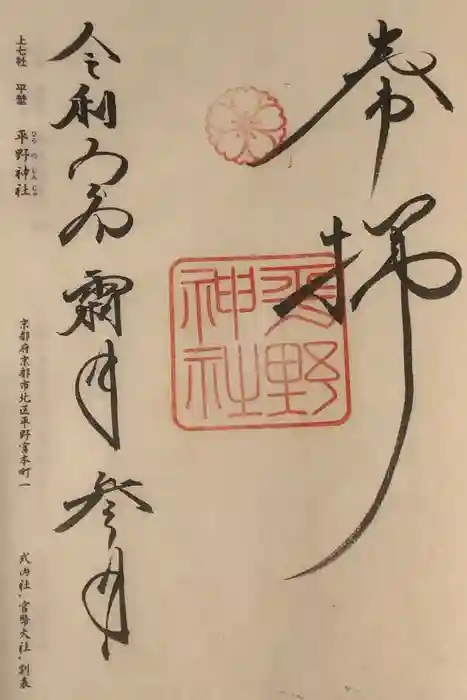 奉拝
平野
神社
令和年霜月参日
上七社 平埜 平野神社
ひらのじんじゃ
京都府京都市北区平野宮本町一
式内社、官幣大社、別表